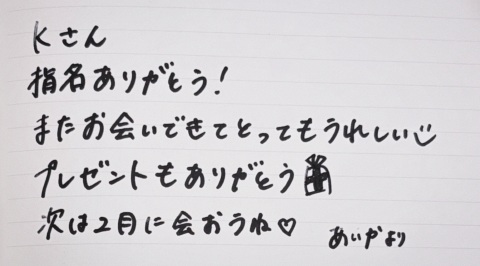 Kさん
指名ありがとう!
またお会いできてとってもうれしい
プレゼントもありがとう
次は2月に会おうね♡
あいかより